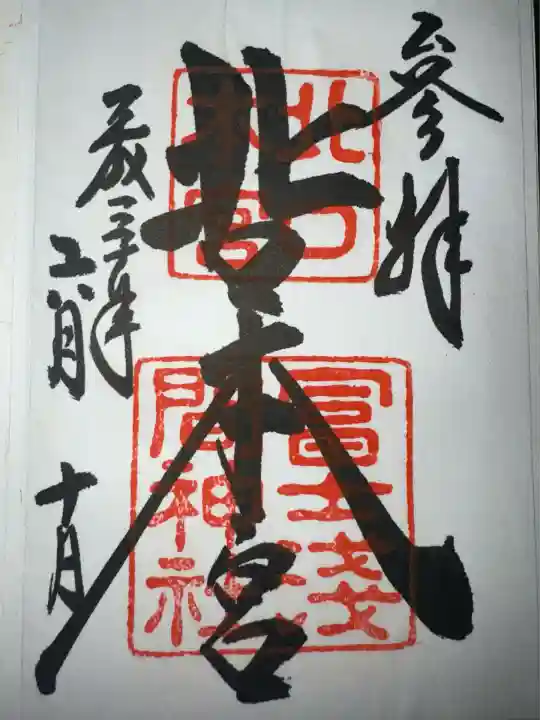 参拝
北口本宮
北口本宮
冨士浅間神社
平成三十年
十月